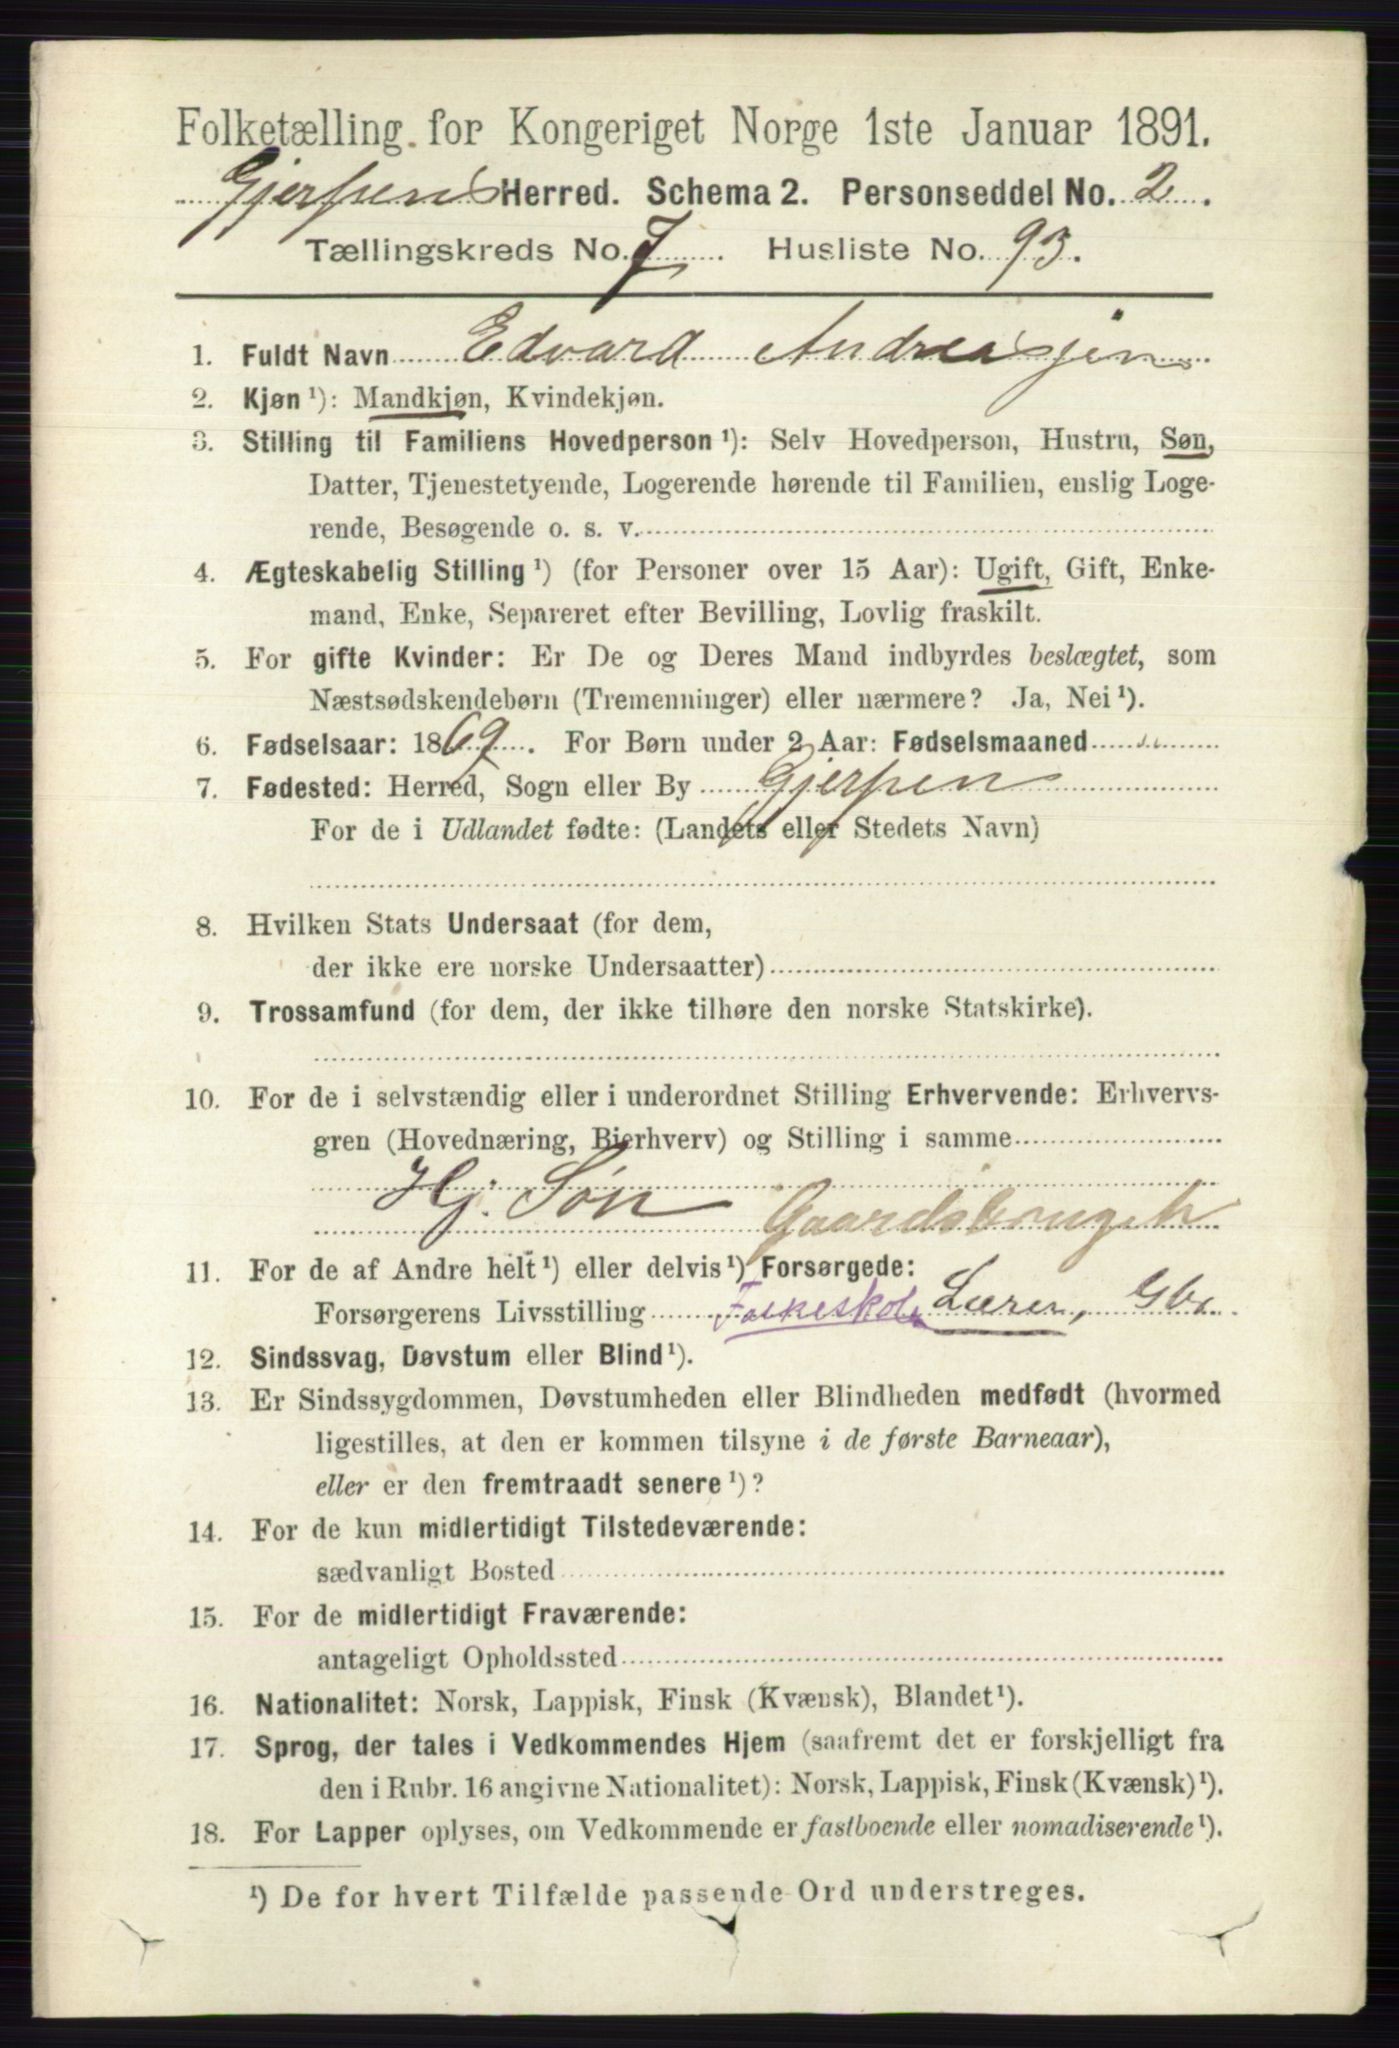 Folketælling for Kongeriget Norge 1ste Januar 1891.
Gjerpens Herred. Schema 2. Personseddel No. 2.
Tællingskreds No. 7 Husliste No. 93.
1. Fuldt Navn Edvard Andreasjen
2. Kjøn ¹): Mandkjøn, Kvindekjøn.
3. Stilling til Familiens Hovedperson ¹): Selv Hovedperson, Hustru, Søn,
Datter, Tjenestetyende, Logerende hørende til Familien, enslig Loge-
rende, Besøgende o. s. v.
4. Ægteskabelig Stilling ¹) (for Personer over 15 Aar): Ugift, Gift, Enke-
mand, Enke, Separeret efter Bevilling, Lovlig fraskilt.
5. For gifte Kvinder: Er De og Deres Mand indbyrdes beslægtet, som
Næstsødskendebørn (Tremenninger) eller nærmere? Ja, Nei ¹).
6. Fødselsaar: 1869. For Børn under 2 Aar: Fødselsmaaned "
7. Fødested: Herred, Sogn eller By Gjerpen
For de i Udlandet fødte: (Landets eller Stedets Navn)
8. Hvilken Stats Undersaat (for dem,
der ikke ere norske Undersaatter)
9. Trossamfund (for dem, der ikke tilhøre den norske Statskirke).
10. For de i selvstændig eller i underordnet Stilling Erhvervende: Erhvervs-
gren (Hovednæring, Bierhverv) og Stilling i samme
Hj. Søn Gaardsbruget
11. For de af Andre helt ¹) eller delvis ¹) Forsørgede:
Forsørgerens Livsstilling Folkeskole Lærer, Gbr
12. Sindssvag, Døvstum eller Blind ¹).
13. Er Sindssygdommen, Døvstumheden eller Blindheden medfødt (hvormed
ligestilles, at den er kommen tilsyne i de første Barneaar),
eller er den fremtraadt senere ¹)?
14. For de kun midlertidigt Tilstedeværende:
sædvanligt Bosted
15. For de midlertidigt Fraværende:
antageligt Opholdssted
16. Nationalitet: Norsk, Lappisk, Finsk (Kvænsk), Blandet ¹).
17. Sprog, der tales i Vedkommendes Hjem (saafremt det er forskjelligt fra
den i Rubr. 16 angivne Nationalitet): Norsk, Lappisk, Finsk (Kvænsk) ¹).
18. For Lapper oplyses, om Vedkommende er fastboende eller nomadiserende ¹).
¹) De for hvert Tilfælde passende Ord understreges.